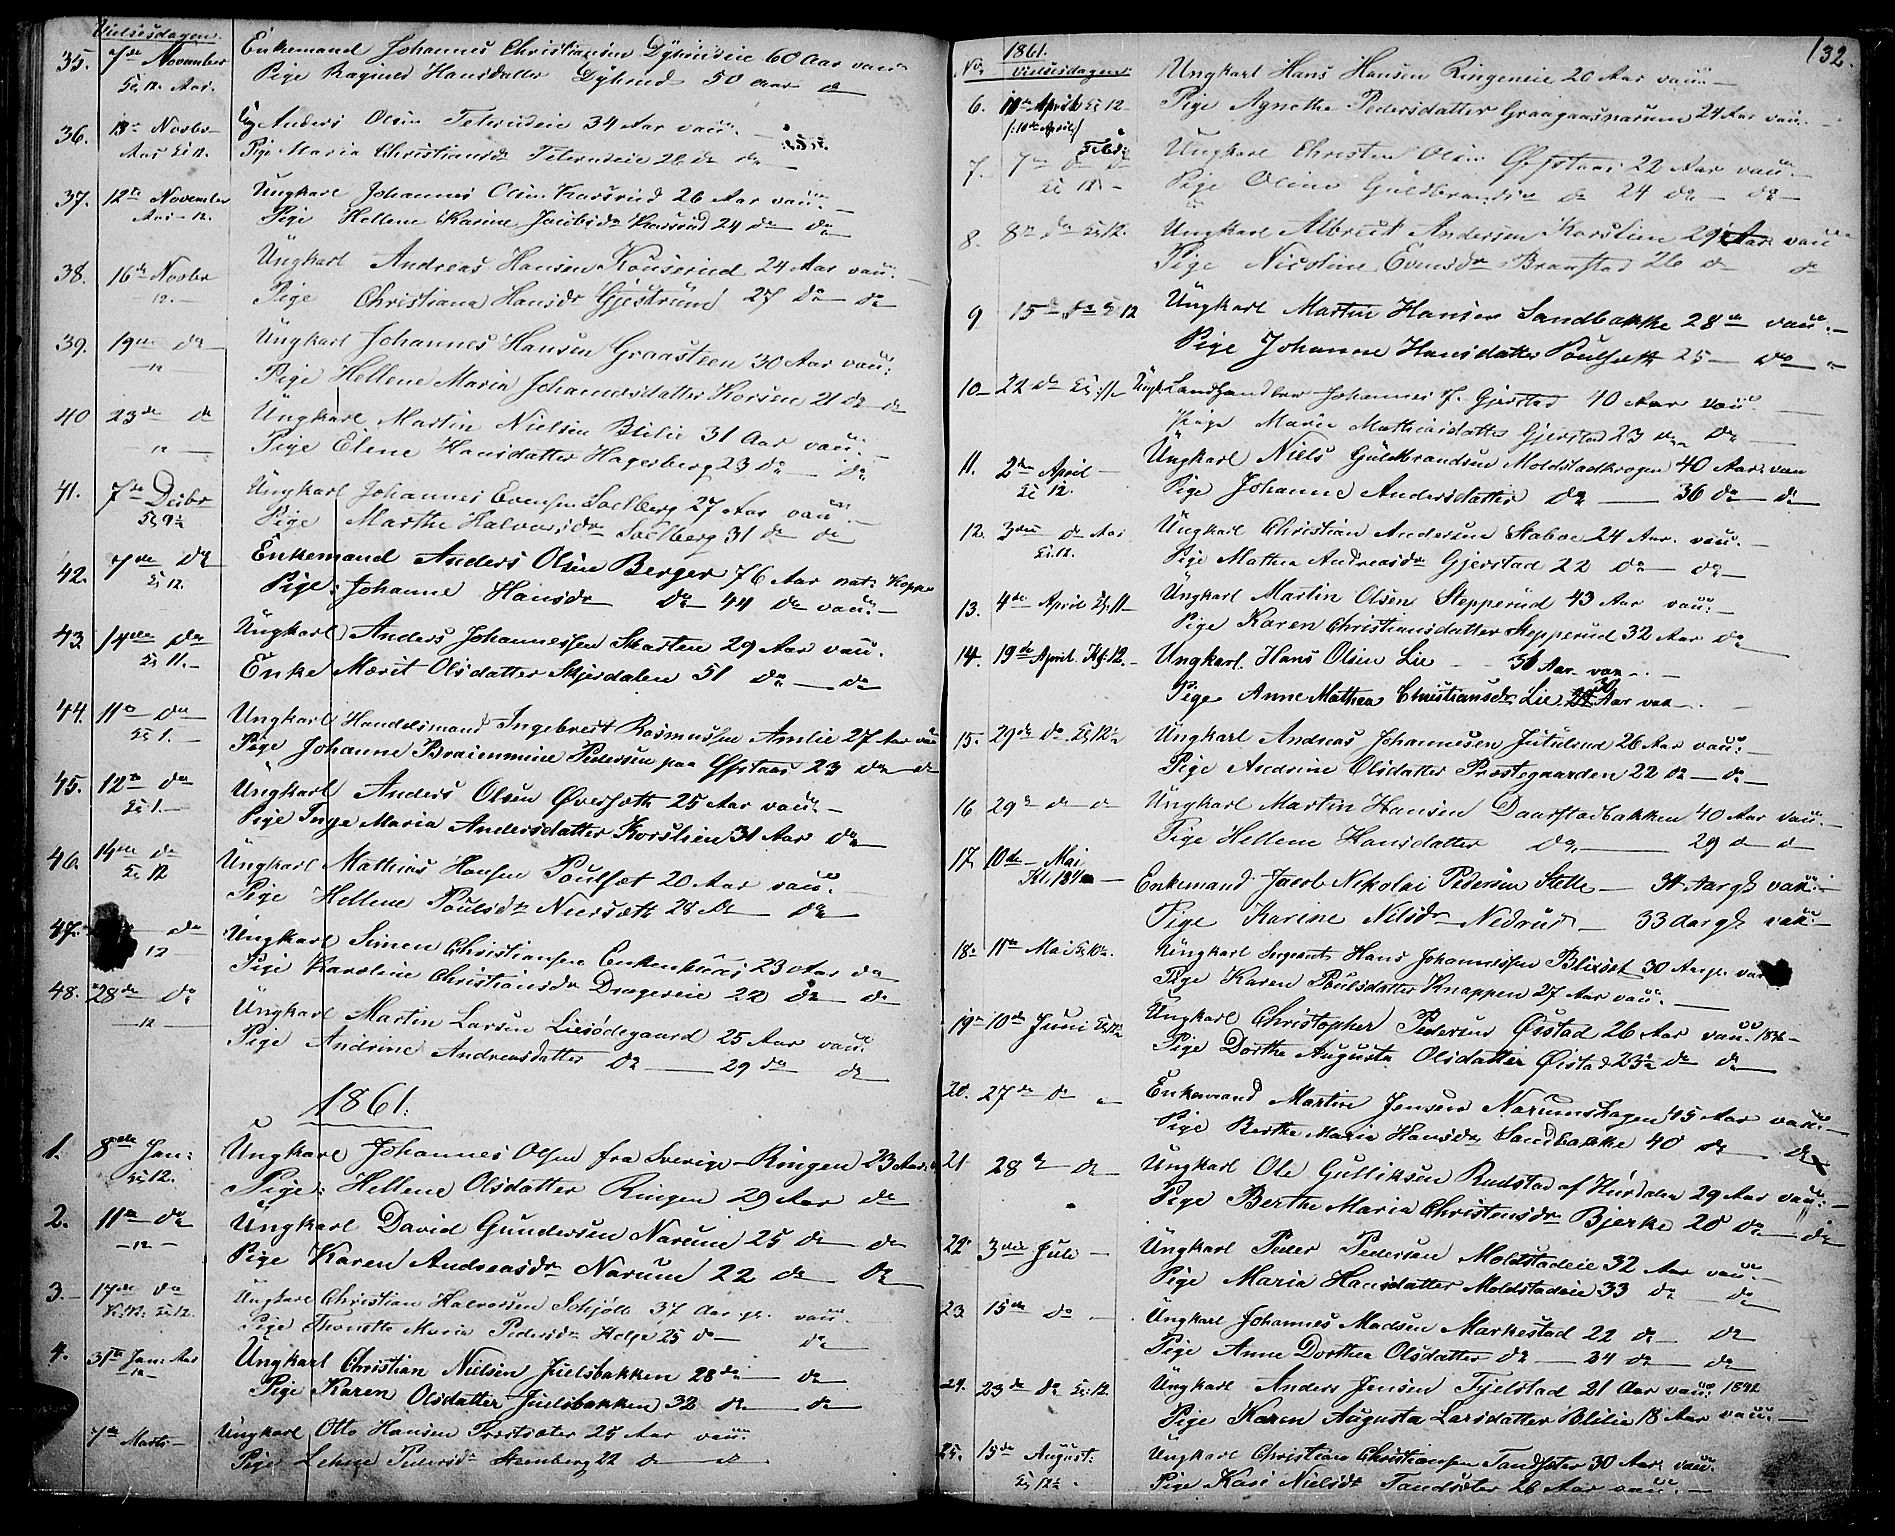 Vielsesdagen.
35. 7de November Enkemand Johannes Christiansen Dyhrudeie 60 Aar vau
Kl. 12. Aas. Pige Hansdatter Dyhrud 50 Aar do
36. 13de Novbr Anders Olsen Teterudeie 34 Aar vau.
Aas Kl 12. Pige Maria Christiansdr Teterudeie 26 do do
37. 12te November Ungkarl Johannes Olsen Karsrud 26 Aar vau.
Aas 12. Pige Hellene Karine Jacobsdr Karsrud 24 do do
38. 16de Novbr Ungkarl Andreas Hansen Kouserud 24 Aar vau.
12. Pige Christiana Hansdr Gjestrum 27 do do
39. 19de do Ungkarl Johannes Hansen Graasteen 30 Aar vau.
12 Pige Hellene Maria Johannesdatter Horsen 21 do do
40 23de do Ungkarl Martin Nielsen Blilie 31 Aar vau.
12 Pige Elene Hansdatter Hagerberg 23 do do
41. 7de Decbr Ungkarl Johannes Evensen Solberg 27 Aar vau.
Kl 9½ Pige Marthe Halvorsdr Solberg 31 do do
42. 7de do Enkemand Anders Olsen Berger 76 Aar nat: Kopper
Kl 12. Pige: Johanne Hansdr do 44 do vau.
43. 14de do Ungkarl Anders Johannessen Skarten 29 Aar vau.
Kl 11. Enke Marit Olsdatter Skjerdalen 51 do do
44. 11te do Ungkarl Handelsmand Ingebret Rasmussen Amlie 27 Aar vau
Kl 1. Pige Johanne Pedersen paa Gfstaas 23 do do
45. 12te do Ungkarl Anders Olsen Øversæth 25 Aar vau.
Kl 1. Pige Inge Maria Andersdatter Korslien 31 Aar do
46. 14de do Ungkarl Mathias Hansen Poulsæt 20 Aar vau.
Kl 12 Pige Hellene Poulsdr Neersæth 28 do do
47. do Ungkarl Simen Christiansen 23 Aar do
12 Pige Karoline Christiansdr Drogereie 22 do do
48. 28de do Ungkarl Martin Larsen Liesødegaard 25 Aar vau.
12 Pige Andrine Andreasdatter do 29 do do
1861.
1. 8de Jan: Ungkarl Johannes Olsen fra Sverige Ringen 23 Aar
Kl 12. Pige: Hellene Olsdatter Ringen 29 Aar do
2. 11te do Ungkarl David Gundersen Narum 25 do do
12 Pige Karen Andreasdr Narum 22 do do
3. 17de do Ungkarl Christian Halvorsen Schjøll 37 Aar gl. vau.
Kl 12. Pige Thonette Maria Pedersdr Helge 25 do do
4. 31te Jan: Aas Ungkarl Christian Nielsen Juelsbakken 28 do do
12 Pige Karen Olsdatter Juelsbakken 32 do do
7de Marts Ungkarl Otto Hansen 25 Aar vau.
Pige Lehne Pedersdr Stenberg 22 do do
132.
No. 1861. Vielsesdagen. Ungkarl Hans Hansen Ringeneie 20 Aar vau.
6. April Kl 12 Pige Agnethe Pedersdatter Graagaasnarum 24 Aar vau.
(:10de April:)
7. 7de Feb. Ungkarl Christen Olsen Gfstaas 22 Aar vau.
Kl 12 Pige Oline Guldbrandsdr do 24 do do
8. 8de do Kl 12. Ungkarl Albret Andersen Korslien 29 Aar vau
Pige Nicoline Evensdr Braastad 26 do do
9 15de do Kl 12 Ungkarl Martin Hansen Sandbakke 28 do vau.
Pige Johanne Hansdatter Poulsæth 25 do
10 22 do Kl 11 Ungk. Landhandler Johannes Gjerstad 40 Aar vau.
Pige Marie Mathiasdatter Gjerstad 23 do do
11. 2den April Ungkarl Niels Guldbrandsen Moldstadkrogen 40 Aar. vau
Kl 12. Pige Johanne Andersdatter do 36 do do
12. 3die do Aas Ungkarl Christian Andersen Staboe 24 Aar. vau.
Kl 12. Pige Mathea Andreasdr Gjerstad 22 do do
13. 4de April Kl 11 Ungkarl Martin Olsen Stepperud 43 Aar vau.
Pige Karen Christiansdatter Stepperud 32 Aar do
14. 19de April. Kl. 12. Ungkarl. Hans Olsen Lie 31 Aar vau
Pige Anne Mathea Christiansdr Lie 30 Aar vau
15. 29de do Kl 12½ Ungkarl Andreas Johannesen Jutulrud 26 Aar vau.
Pige Andrine Olsdatter Præstegaarden 22 do do
16 29de do Ungkarl Martin Hansen Daarstadbakken 40 Aar vau.
Pige Hellene Hansdatter do 29 do do
17. 10de Mai Enkemand Jacob Nikolai Pedersen Stelle 34 Aar gl. vau.
Pige Karine Nilsdr Nedrud 33 Aar gl. vau.
18. 11te Mai Ungkarl Sergeant Hans Johannessen Blixset 30 Aar gl vau
Pige Karen Poulsdatter Knappen 27 Aar vau.
19. 10de Juni Ungkarl Christopher Pedersen Øistad 26 Aar vau.
Pige Dorthe Augusta Olsdatter Øistad 23 do do
20. 27de do Enkemand Martin Jensen Narumshagen 45 Aar vau.
Pige Berthe Maria Hansdr Sandbakke 40 do do
21 28de do Ungkarl Ole Gulliksen Rudstad af Hurdalen 29 Aar vau.
Pige Berthe Maria Christensdr Bjerke 20 do do
22. 3die Juli Ungkarl Peder Pedersen Moldstadeie 32 Aar vau.
Pige Maria Hansdatter Moldstadeie 33 do do
23. 15de do Ungkarl Johannes Madsen Markestad 22 do do
Pige Anne Dorthea Olsdatter do 24 do do
24. 23de do Kl 12 Ungkarl Anders Jensen Fjelstad 21 Aar vau. 1842
Pige Karen Augusta Larsdatter Blilie 18 Aar vau.
25. 15de August. Ungkarl Christian Christiansen Tandsæter 30 Aar. vau.
Kl 12½ Pige Kari Nielsdr Tandsæter 26 Aar vau.